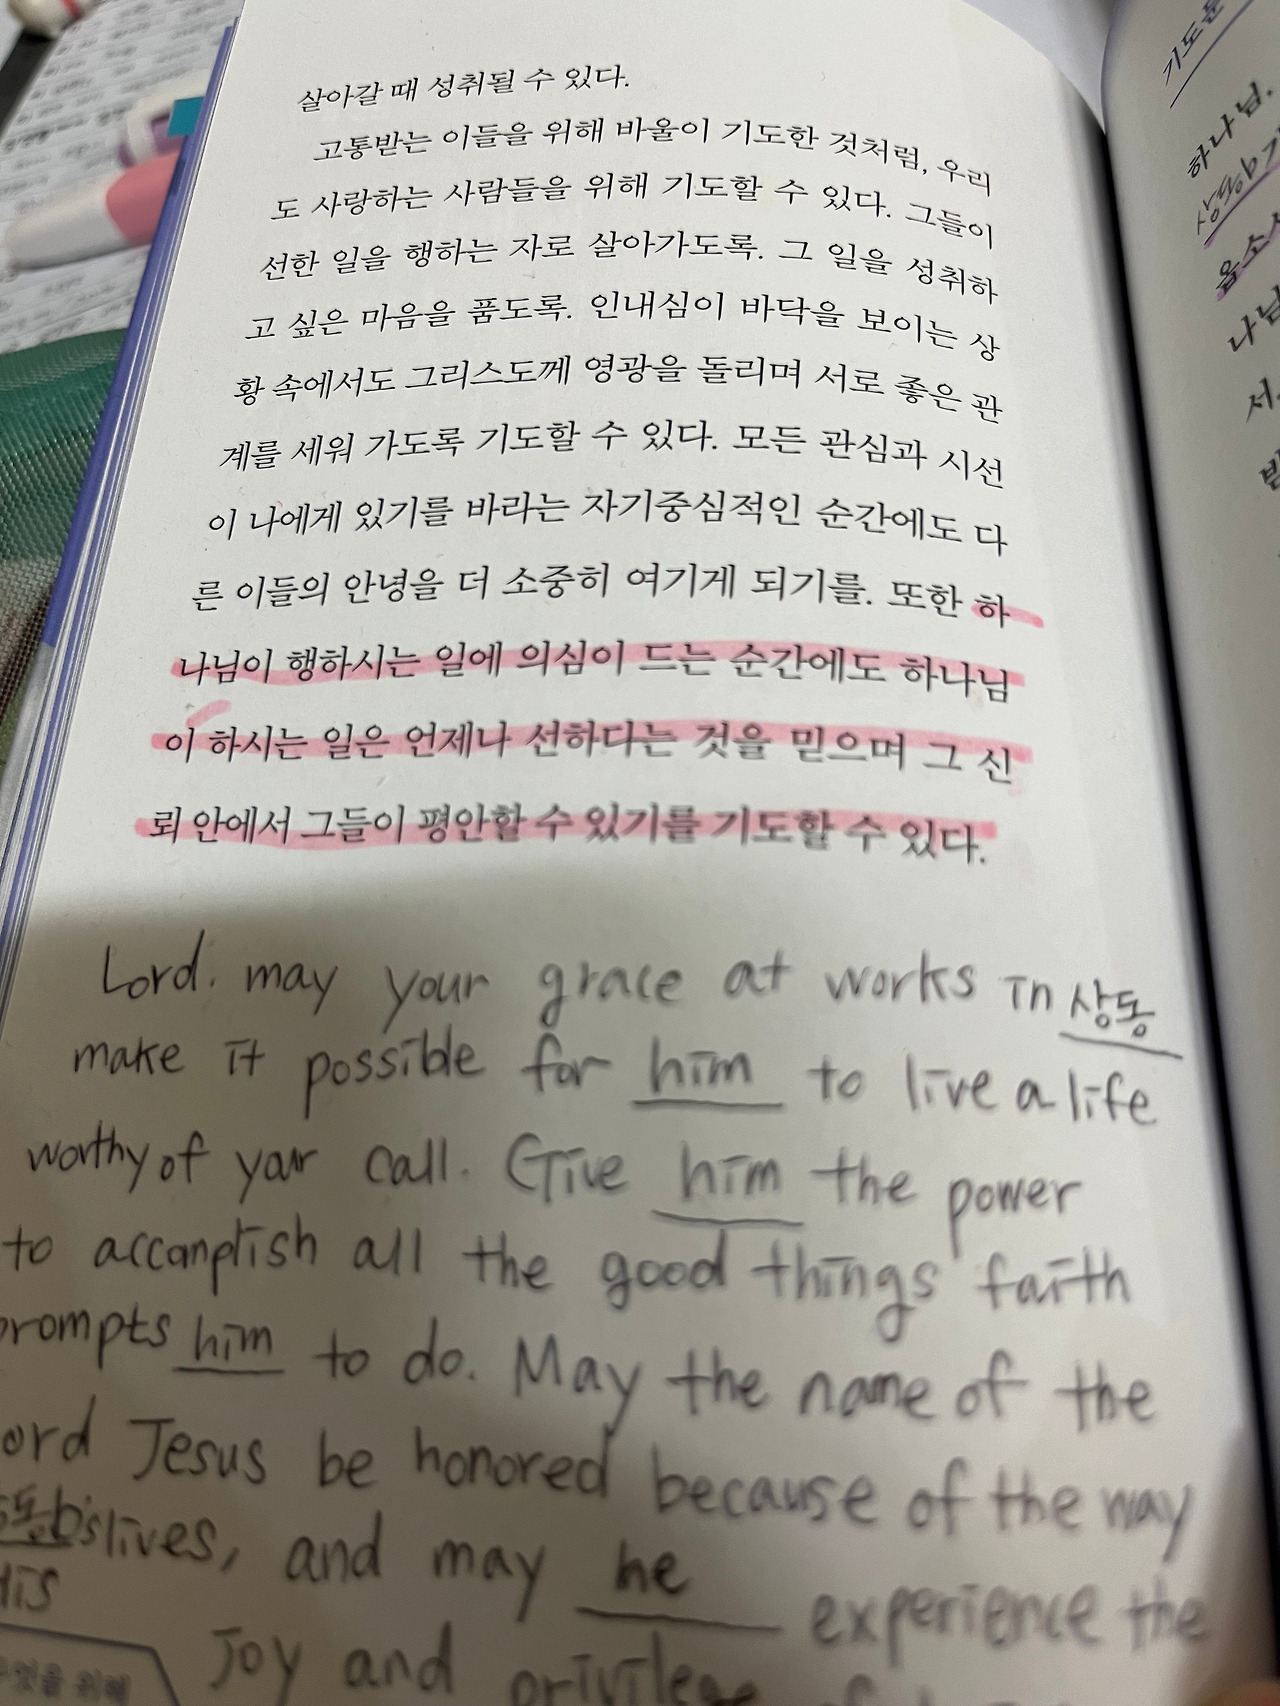 살아갈 때 성취될 수 있다.
고통받는 이들을 위해 바울이 기도한 것처럼, 우리
도 사랑하는 사람들을 위해 기도할 수 있다. 그들이
선한 일을 행하는 자로 살아가도록. 그 일을 성취하
고 싶은 마음을 품도록. 인내심이 바닥을 보이는 상
황 속에서도 그리스도께 영광을 돌리며 서로 좋은 관
계를 세워 가도록 기도할 수 있다. 모든 관심과 시선
이 나에게 있기를 바라는 자기중심적인 순간에도 다
른 이들의 안녕을 더 소중히 여기게 되기를. 또한 하
나님이 행하시는 일에 의심이 드는 순간에도 하나님
이 하시는 일은 언제나 선하다는 것을 믿으며 그 신
뢰 안에서 그들이 평안할 수 있기를 기도할 수 있다.
Lord. may your grace at works in 상동
make it possible for him to live a life
worthy of your call. Give him the power
to accomplish all the good things faith
prompts him to do. May the name of the
ord Jesus be honored because of the way
lives, and may he experience the
His
Joy and privilege
위해
기도문
하나님.
나님
서